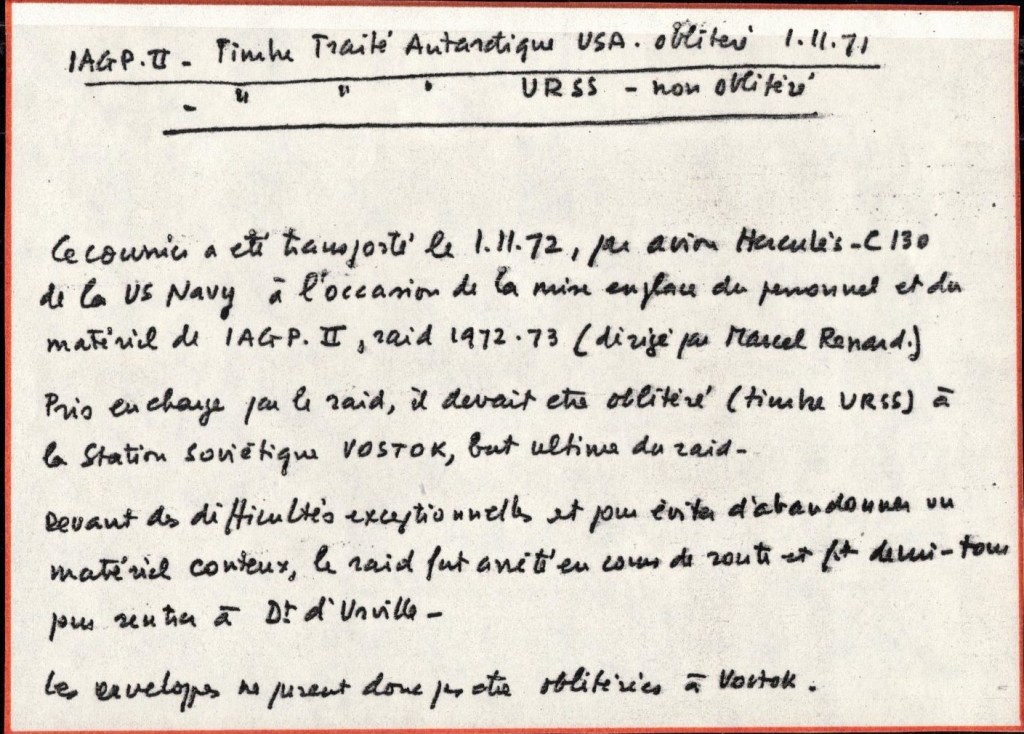 IAGP.II - Timbre Traité Antarctique USA. oblitéré 1.11.71
- " " " URSS - non oblitéré
Ce courrier a été transporté le 1.11.72, par avion Herculès-C130
de la US Navy à l'occasion de la mise en place du personnel et du
matériel de IAGP.II, raid 1972.73 (dirigé par Marcel Renard.)
Pris en charge par le raid, il devait etre oblitéré (timbre URSS) à
la Station Soviétique VOSTOK, but ultime du raid-
Devant des difficultés exceptionnelles et pour éviter d'abandonner un
matériel couteux, le raid fut arrêté en cours de route et fit demi-tour
pour rentrer à Dt d'Urville-
Les enveloppes ne purent donc pas etre oblitérées à Vostok.